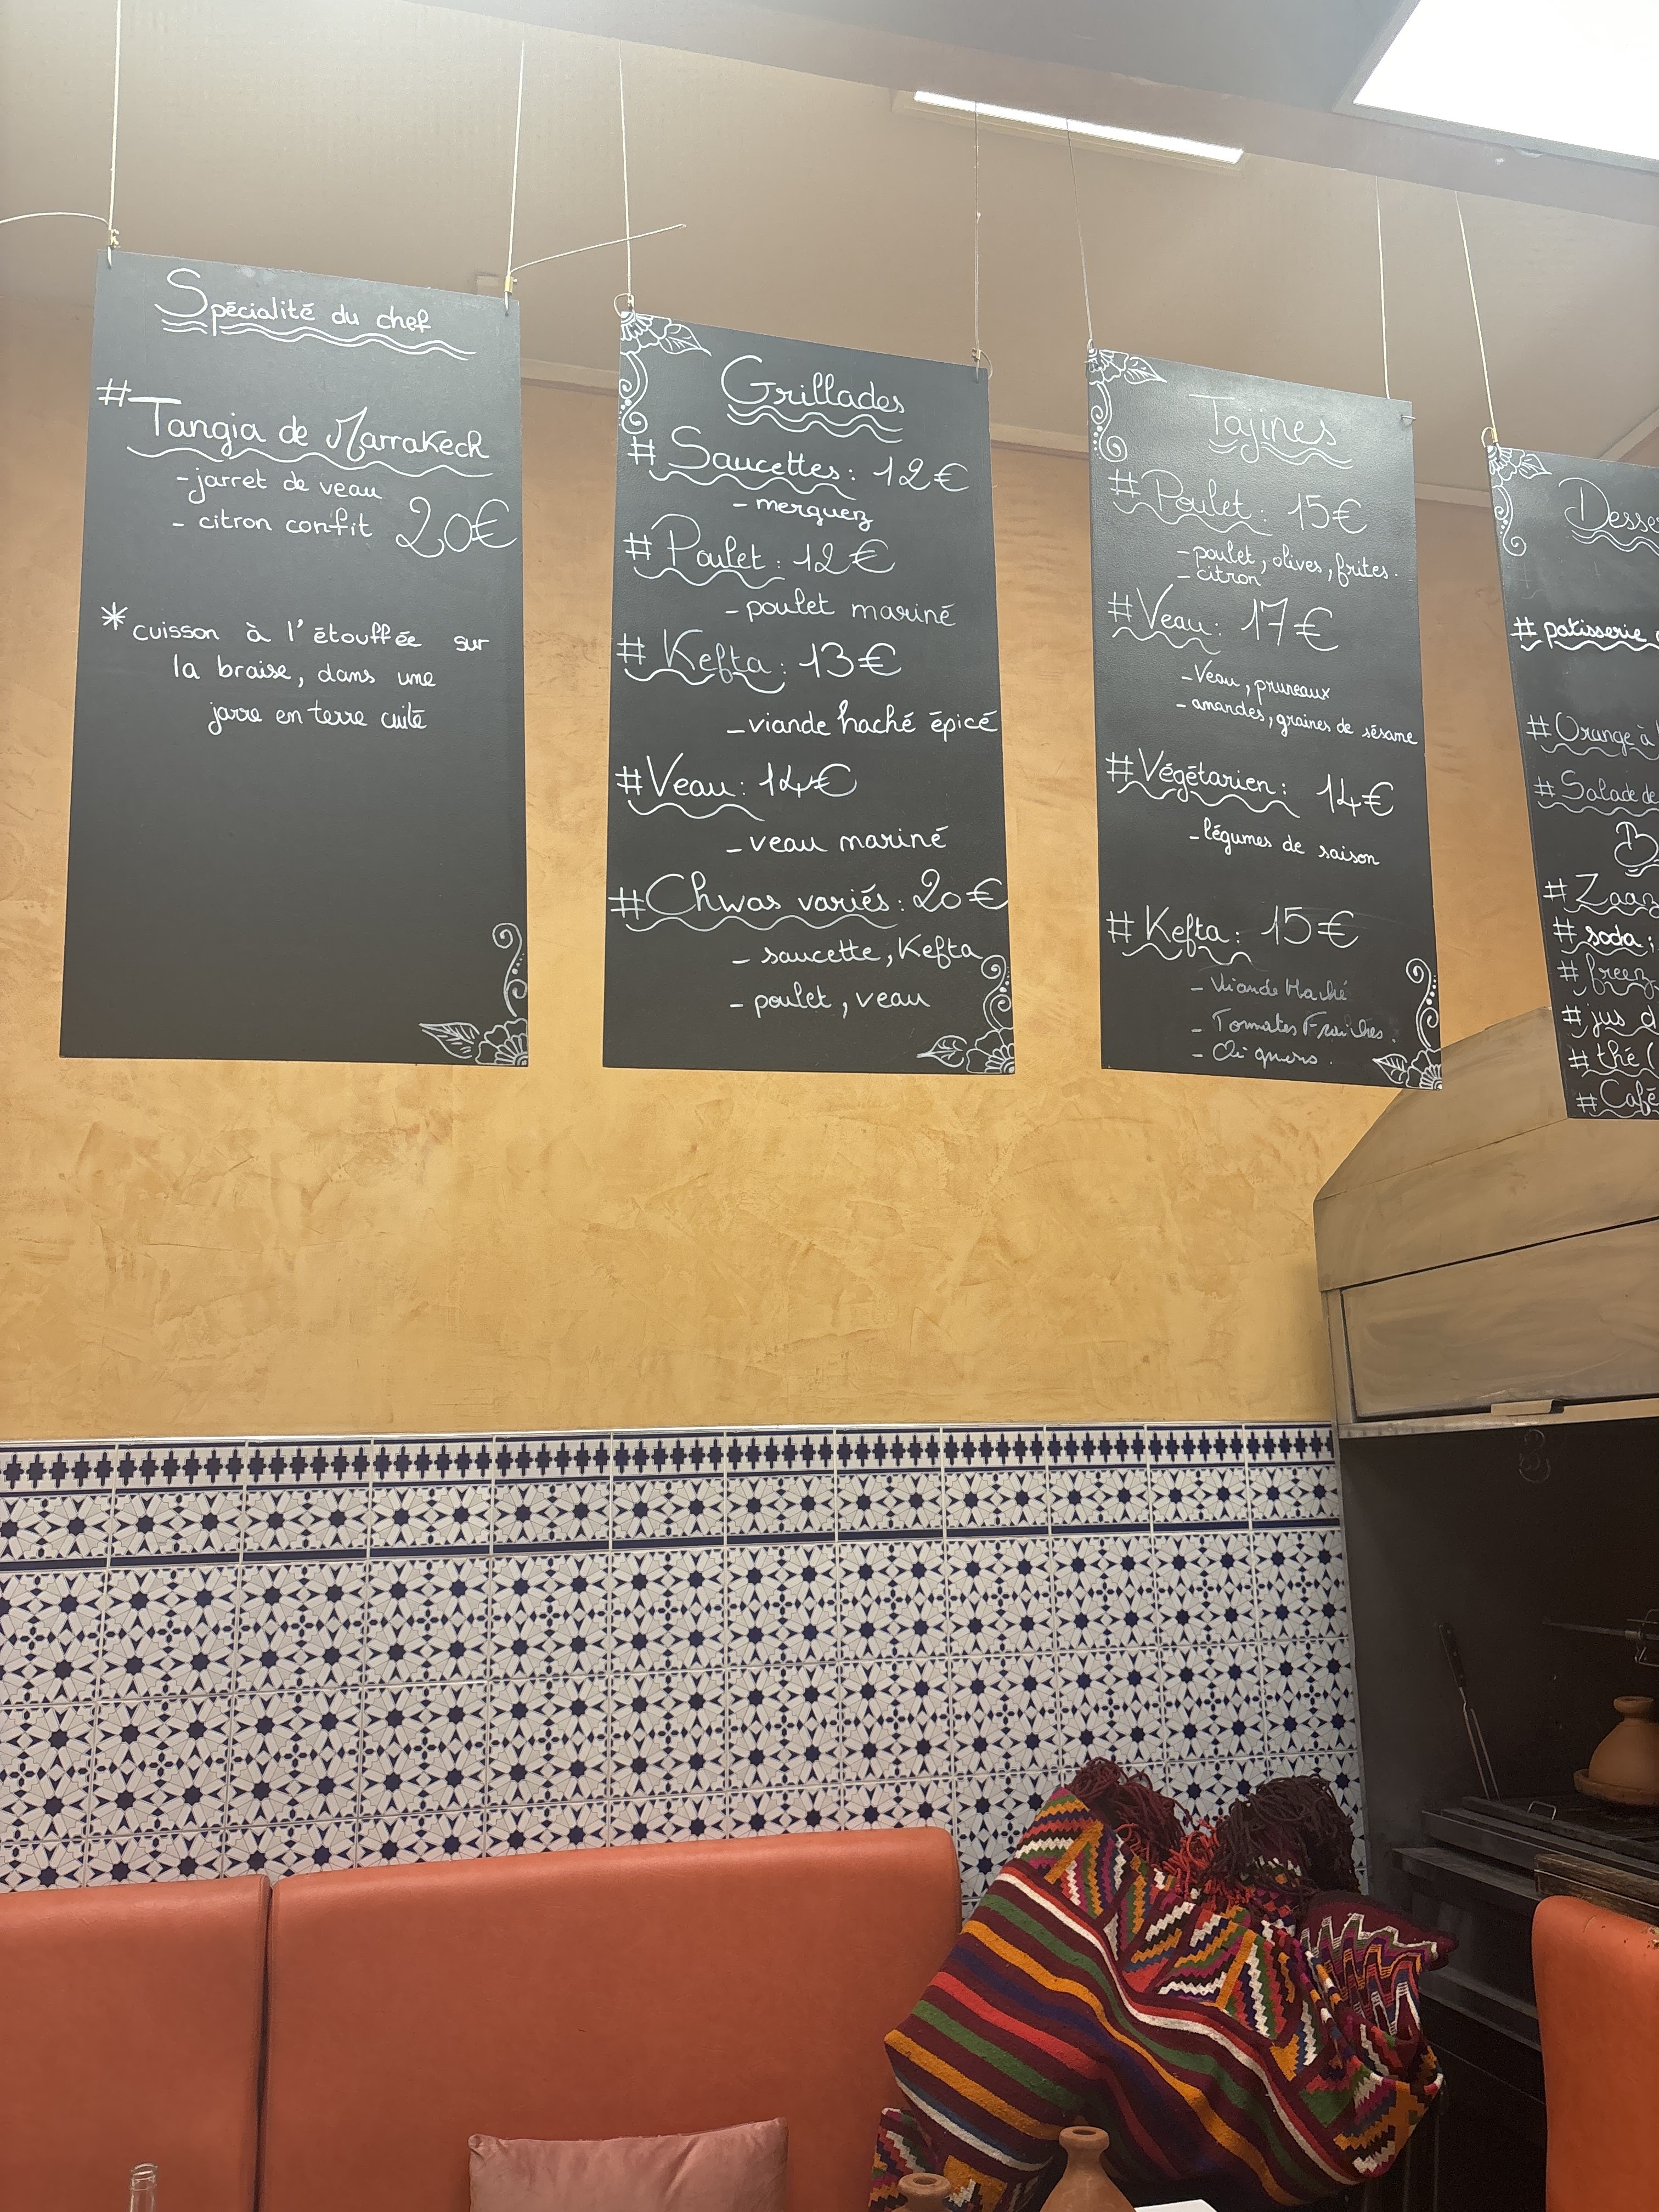 Spécialité du chef
# Tangia de Marrakech
- jarret de veau
- citron confit 20€
* cuisson à l'étouffée sur
la braise, dans une
jarre en terre cuite
Grillades
# Saucettes : 12€
- merguez
# Poulet : 12€
- poulet mariné
# Kefta : 13€
- viande haché épicé
# Veau : 14€
- veau mariné
# Chwas variés : 20€
- saucette, Kefta
- poulet, veau
Tajines
# Poulet : 15€
- poulet, olives, frites.
- citron
# Veau : 17€
- Veau, pruneaux
- amandes, graines de sésame
# Végétarien : 14€
- légumes de saison
# Kefta : 15€
- Viande Haché
- Tomates Fraiches.
Desse
# patisserie
# Orange à
# Salade de
B
# Zaaz
# soda ;
# freez
# jus d
# thé (
# Café